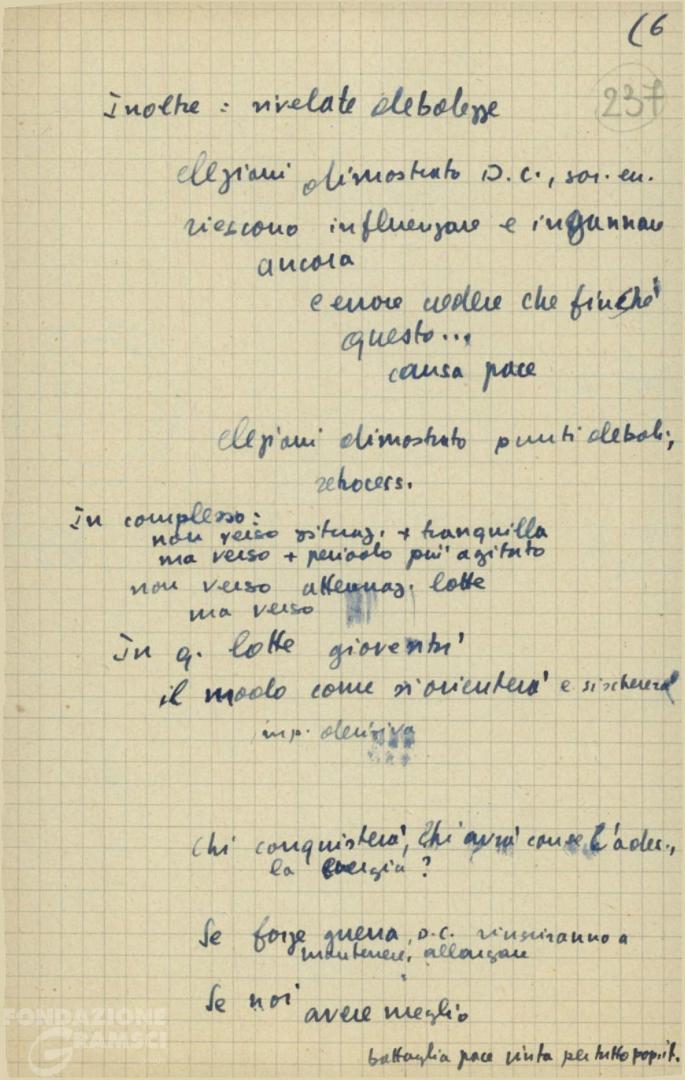 (6
237
Inoltre : rivelate debolezze
elezioni dimostrato D.C., soc. en.
riescono influenzare e ingannare
ancora
e errore credere che finché
questo...
causa pace
elezioni dimostrato punti deboli,
retrocess.
In complesso:
non verso situaz. + tranquilla
ma verso + periodo più agitato
non verso attenuaz. lotte
ma verso
In q. lotte gioventù
il modo come si orienterà e si schiererà
imp. decisiva
Chi conquisterà, chi avrà con sé l'ades.,
la energia ?
Se forze guerra, D.C. riusciranno a
mantenere, allargare
Se noi avere meglio
battaglia pace vinta per tutto pop. it.
FONDAZIONE
GRAMSCI